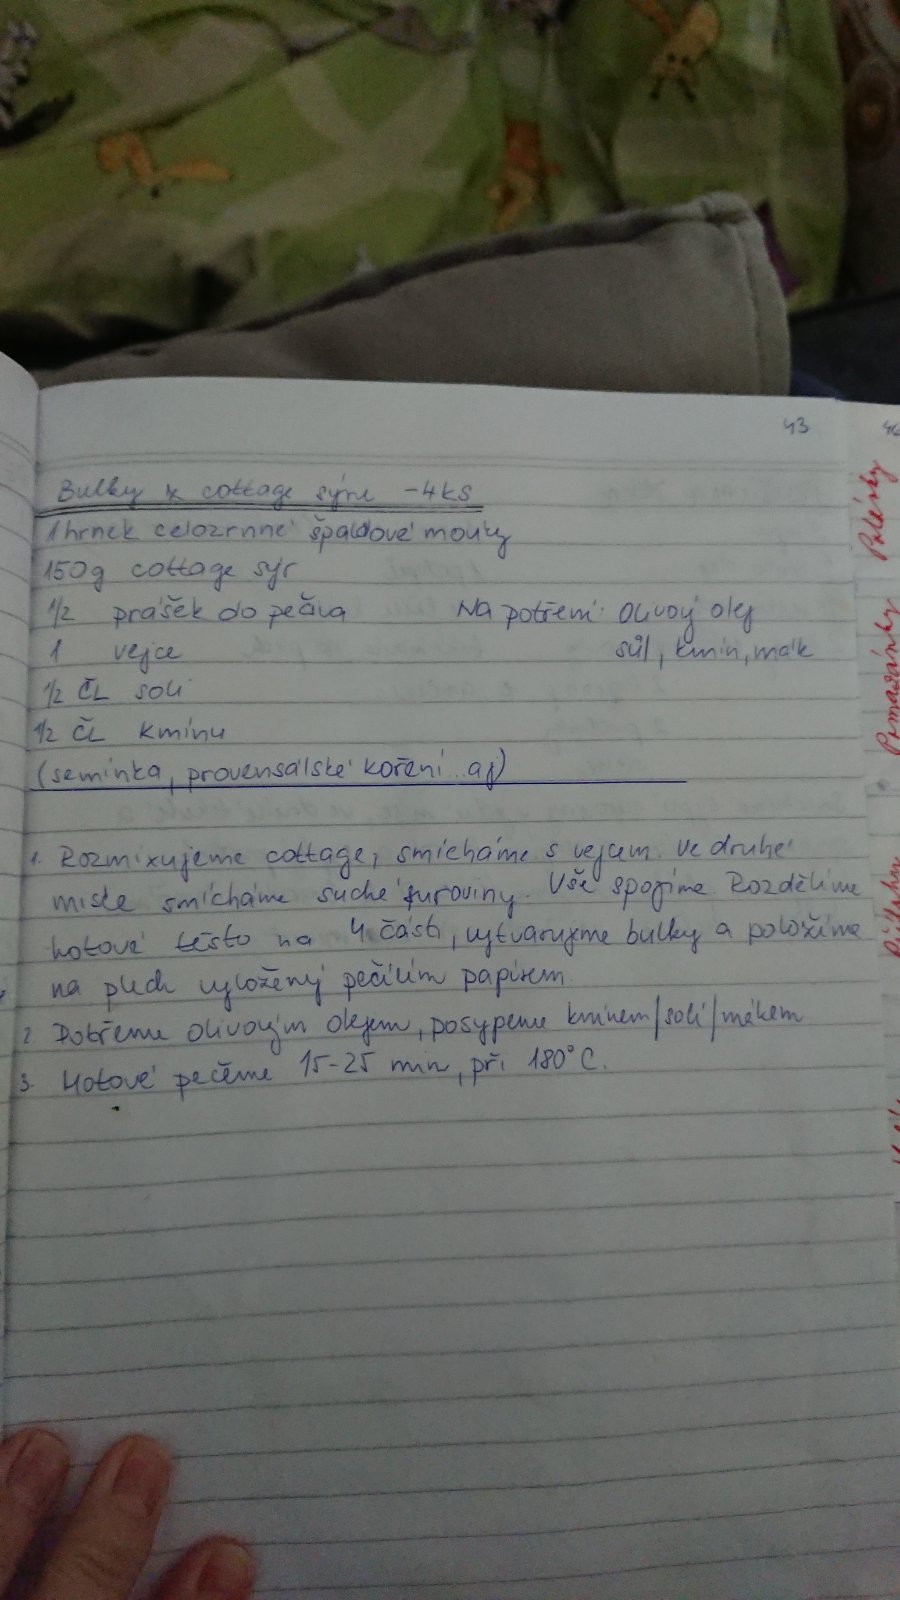 43
Bulky z cottage sýru - 4ks
1 hrnek celozrnné špaldové mouky
150g cottage sýr
1/2 prášek do pečiva Na potření: Olivový olej
1 vejce sůl, kmín, mák
1/2 ČL soli
1/2 čL kmínu
(semínka, provensálské koření...aj)
1. Rozmixujeme cottage, smícháme s vejcem. Ve druhé
misce smícháme suché suroviny. Vše spojíme. Rozdělíme
hotové těsto na 4 části, vytvarujeme bulky a položíme
na plech vyložený pečícím papírem.
2. Potřeme olivovým olejem, posypeme kmínem/solí/mákem
3. Hotové pečeme 15-25 min, při 180°C.
Polévky
Pomazánky